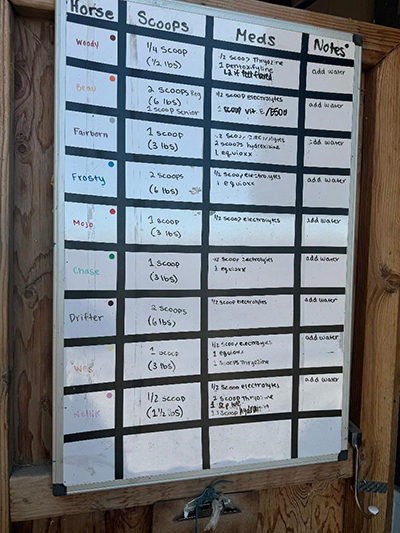 Horse Scoops Meds Notes
Woody 1/4 scoop 1/2 scoop Thryozine add water
(1/2 lbs) 1 pentoxifyline
Beau 2 scoops Reg 1/2 scoop electrolytes add water
(6 lbs) 1 scoop vit. E/E500
1 scoop senior
Fairborn 1 scoop 1/2 scoop electrolytes add water
(3 lbs) 2 scoops hydroxizine
1 equioxx
Frosty 2 scoops 1/2 scoop electrolytes add water
(6 lbs) 1 equioxx
Mojo 1 scoop 1/2 scoop electrolytes add water
(3 lbs)
Chase 1 scoop 1/2 scoop electrolytes add water
(3 lbs) 1 equioxx
Drifter 2 scoops 1/2 scoop electrolytes add water
(6 lbs)
Wes 1 scoop 1/2 scoop electrolytes add water
(3 lbs) equioxx
scoops Thryozine
1/2 scoop 1/2 scoop electrolytes add water
(1 1/2 lbs) scoop Thryozine
scoop